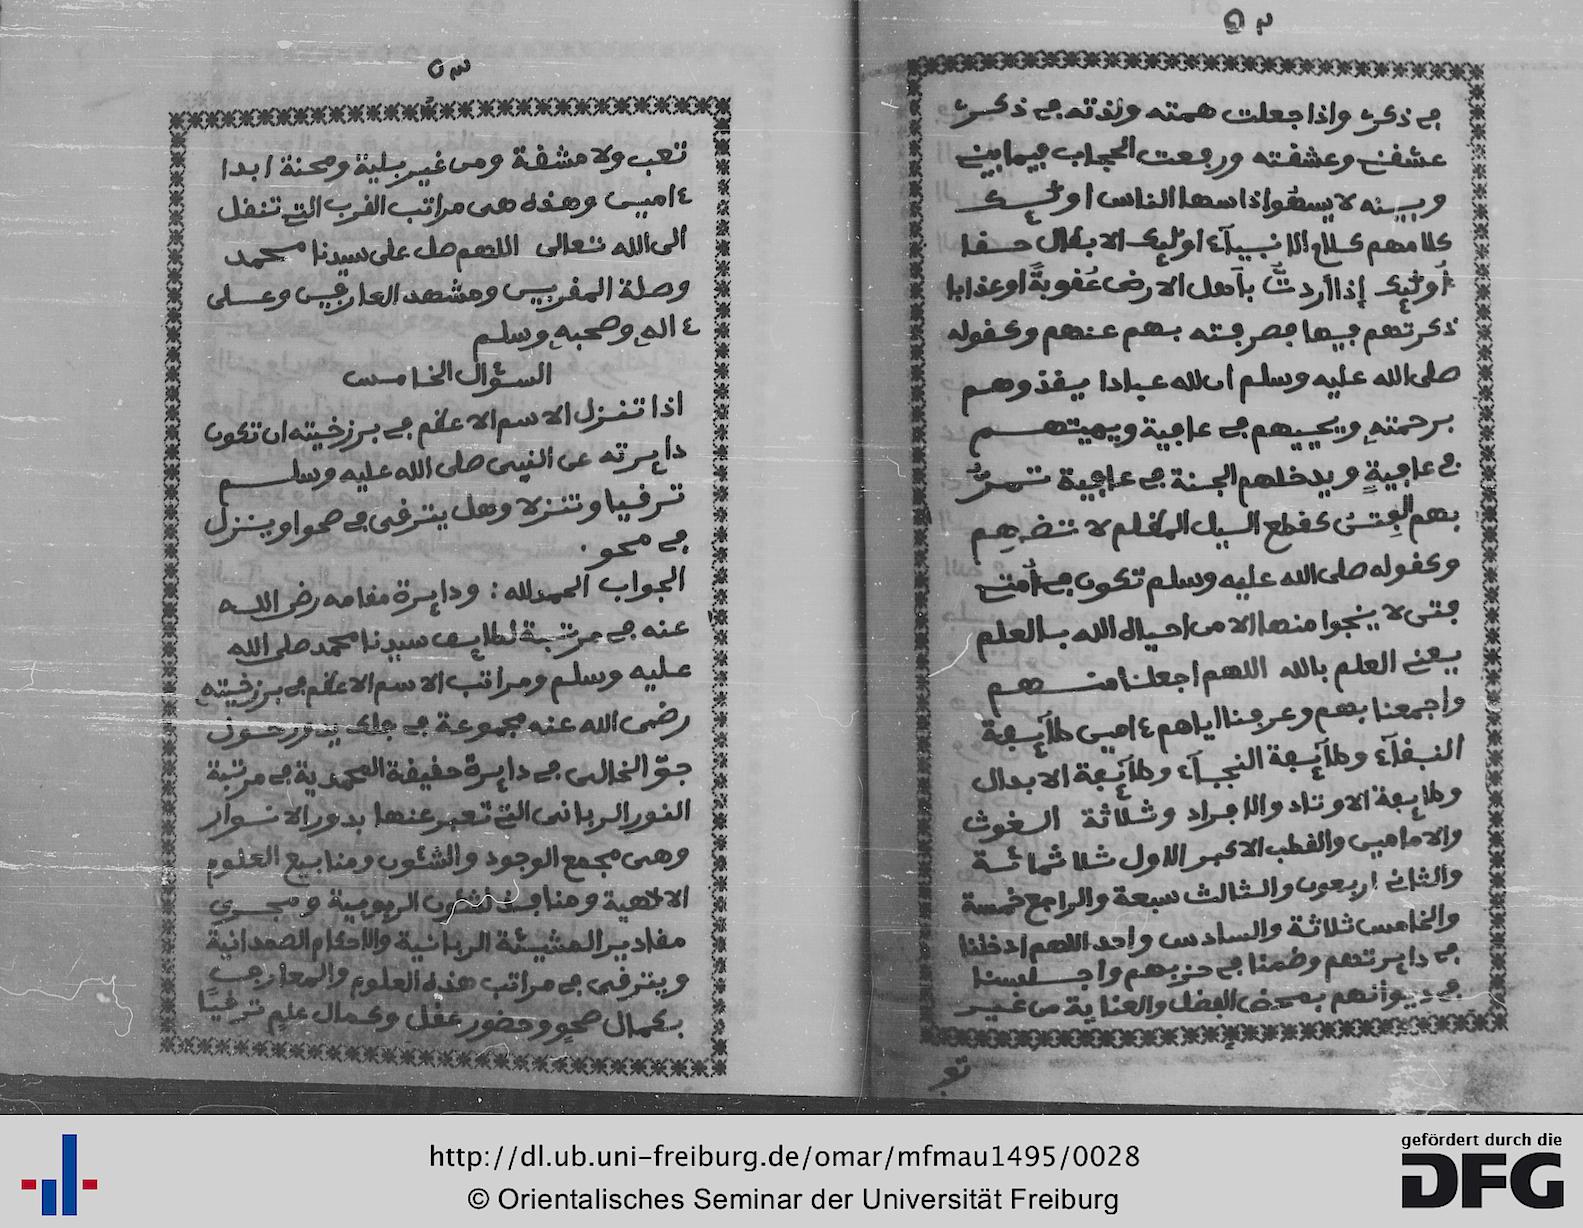 ٥٢
في ذكري واذا جعلت همته ولذته في ذكري
عشقني وعشقته ورفعت الحجاب فيما بيني
وبينه لا يسهوا اذا سها الناس اولئك
كلامهم كلام الانبيآء اولئك الابطال حقا
أولئك إذا أردتُ بأهل الارض عُقوبةً أو عذابا
ذكرتهم فيها فصرفته بهم عنهم وكقوله
صلى الله عليه وسلم ان لله عبادا يغذوهم
برحمته ويحييهم في عافية ويميتهم
في عافيةٍ ويدخلهم الجنة في عافية تمرُّ
بهم الفِتنُ كقطع اليل المظلم لا تضرهم
وكقوله صلى الله عليه وسلم تكون في أمتي
فتن لا ينجوا منها الا من احياه الله بالعلم
يعني العلم بالله اللهم اجعلنا منهم
واجمعنا بهم وعرفنا اياهم ءامين طآئفة
النقبآء وطآئفة النجبآء وطآئفة الابدال
وطائفة الاوتاد والافراد وثلاثة الغوث
والامامين والقطب الاكبر الاول ثلاثمائة
والثاني اربعون والثالث سبعة والرابع خمسة
والخامس ثلاثة والسادس واحد اللهم ادخلنا
في دائرتهم وضمنا في حزبهم واجلسنا
في ديوانهم بمحض الفضل والعناية من غير
تعب
٥٣
تعب ولا مشقة ومن غير بلية ومحنة ابدا
ءامين وهذه هي مراتب القرب التي تنقل
الى الله تعالى اللهم صل على سيدنا محمد
وصلة المقربين ومشهد العارفين وعلى
ءاله وصحبه وسلم
السؤال الخامس
اذا تنزل الاسم الاعظم في برزخيته ان تكون
دائرته عن النبي صلى الله عليه وسلم
ترقيا وتنزلا وهل يترقى في صحو او ينزل
في محو.
الجواب الحمد لله: ودائرة مقامه رضي الله
عنه في مرتبة لطايف سيدنا محمد صلى الله
عليه وسلم ومراتب الاسم الاعظم في برزخيته
رضي الله عنه مجموعة في فلك يدور حول
جوّ الخالي في دائرة حقيقة المحمدية في مرتبة
النور الرباني التي تعبر عنها بدور الانوار
وهي مجمع الوجود والشئون ومنابيع العلوم
الالهية ومنافذ لشئون الربوبية ومجري
مقادير المشيئة الربانية والاحكام الصمدانية
ويترقى في مراتب هذه العلوم والمعارف
بكمال صحو وحضور عقل وكمال علم ترقيًا
http://dl.ub.uni-freiburg.de/omar/mfmau1495/0028
© Orientalisches Seminar der Universität Freiburg
gefördert durch die
DFG